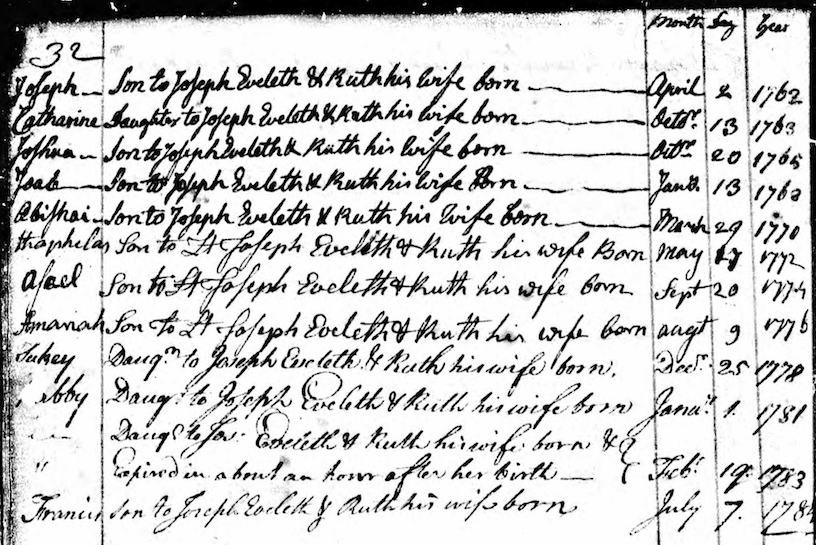 Month Day Year
32
Joseph — Son to Joseph Eveleth & Ruth his wife born — April 2 1762
Catharine Daughter to Joseph Eveleth & Ruth his wife born — Octor. 13 1763
Joshua — Son to Joseph Eveleth & Ruth his wife born — Octr. 20 1765
Joab — Son to Joseph Eveleth & Ruth his wife Born — Jany. 13 1768
Abishai — Son to Joseph Eveleth & Ruth his Wife born — March 29 1770
Son to Lt Joseph Eveleth & Ruth his wife Born May 17 1772
Asael Son to Lt Joseph Eveleth & Ruth his wife born Sept 20 1774
Amariah Son to Lt Joseph Eveleth & Ruth his wife born augt 9 1776
Daugr. to Joseph Eveleth & Ruth his wife born. Decr. 25 1778
Daugr. to Joseph Eveleth & Ruth his wife born Janur. 1. 1781
Daugr to Jos: Eveleth & Ruth his wife born &
" Expired in about an hour after her birth — Febr. 19. 1783
Francis Son to Joseph Eveleth & Ruth his wife born July 7.